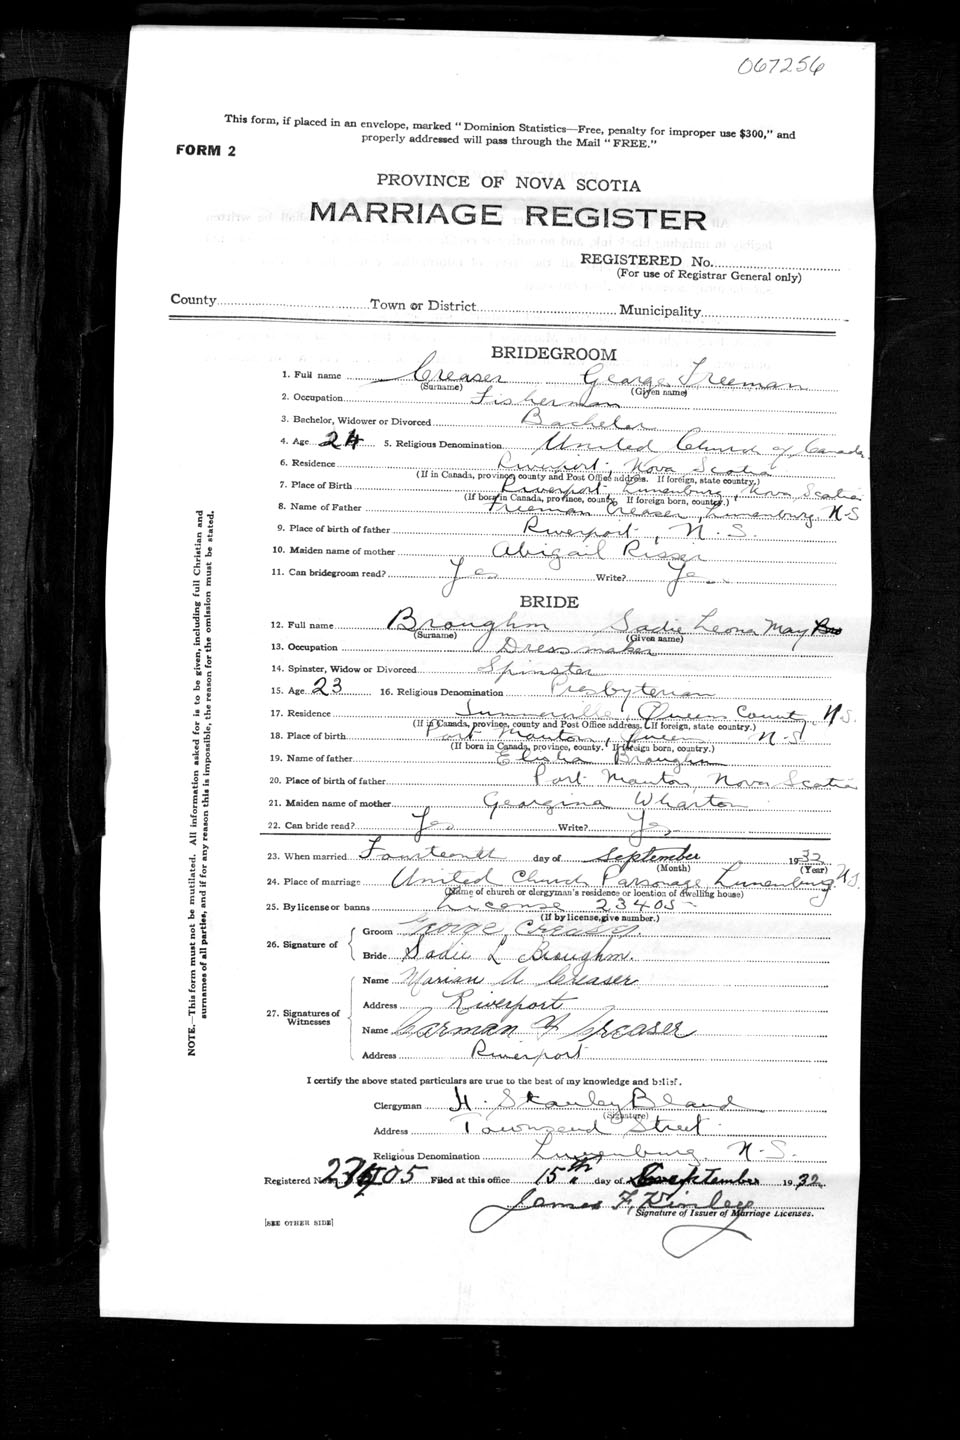 067256
This form, if placed in an envelope, marked "Dominion Statistics—Free, penalty for improper use $300," and
properly addressed will pass through the Mail "FREE."
FORM 2
PROVINCE OF NOVA SCOTIA
MARRIAGE REGISTER
REGISTERED No.
(For use of Registrar General only)
County Town or District Municipality
BRIDEGROOM
1. Full name Creaser George Freeman
(Surname) (Given name)
2. Occupation Fisherman
3. Bachelor, Widower or Divorced Bachelor
4. Age 24 5. Religious Denomination United Church of Canada
6. Residence Riverport, Nova Scotia
(If in Canada, province, county and Post Office address. If foreign, state country.)
7. Place of Birth Riverport, Lunenburg, Nova Scotia
(If born in Canada, province, county. If foreign born, country.)
8. Name of Father Freeman Creaser, Lunenburg, N-S
9. Place of birth of father Riverport, N.S.
10. Maiden name of mother Abigail Risser
11. Can bridegroom read? Yes Write? Yes
BRIDE
12. Full name Broughm Sadie Leona May
(Surname) (Given name)
13. Occupation Dressmaker
14. Spinster, Widow or Divorced Spinster
15. Age 23 16. Religious Denomination Presbyterian
17. Residence Summerville, Queens County, N.S.
(If in Canada, province, county and Post Office address. If foreign, state country.)
18. Place of birth Port Mouton, Queens N-S
(If born in Canada, province, county. If foreign born, country.)
19. Name of father Elisha Broughm
20. Place of birth of father Port Mouton, Nova Scotia
21. Maiden name of mother Georgina Wharton
22. Can bride read? Yes Write? Yes
23. When married Fourteenth day of September 1932
(Month) (Year)
24. Place of marriage United Church Parsonage, Lunenburg, N.S.
(Name of church or clergyman's residence or location of dwelling house)
25. By license or banns License 23405
(If by license, give number.)
26. Signature of
Groom George Creaser
Bride Sadie L Broughm.
27. Signatures of Witnesses
Name Marian A Creaser
Address Riverport
Name Carman F Creaser
Address Riverport
I certify the above stated particulars are true to the best of my knowledge and belief.
Clergyman H. Stanley Bland
(Signature)
Address Townsend Street
Religious Denomination Lunenburg, N-S.
Registered No. 23405 Filed at this office 15th day of September 1932
James F. Kinley
Signature of Issuer of Marriage Licenses.
[SEE OTHER SIDE]
NOTE.—This form must not be mutilated. All information asked for is to be given, including full Christian and
surnames of all parties, and if for any reason this is impossible, the reason for the omission must be stated.